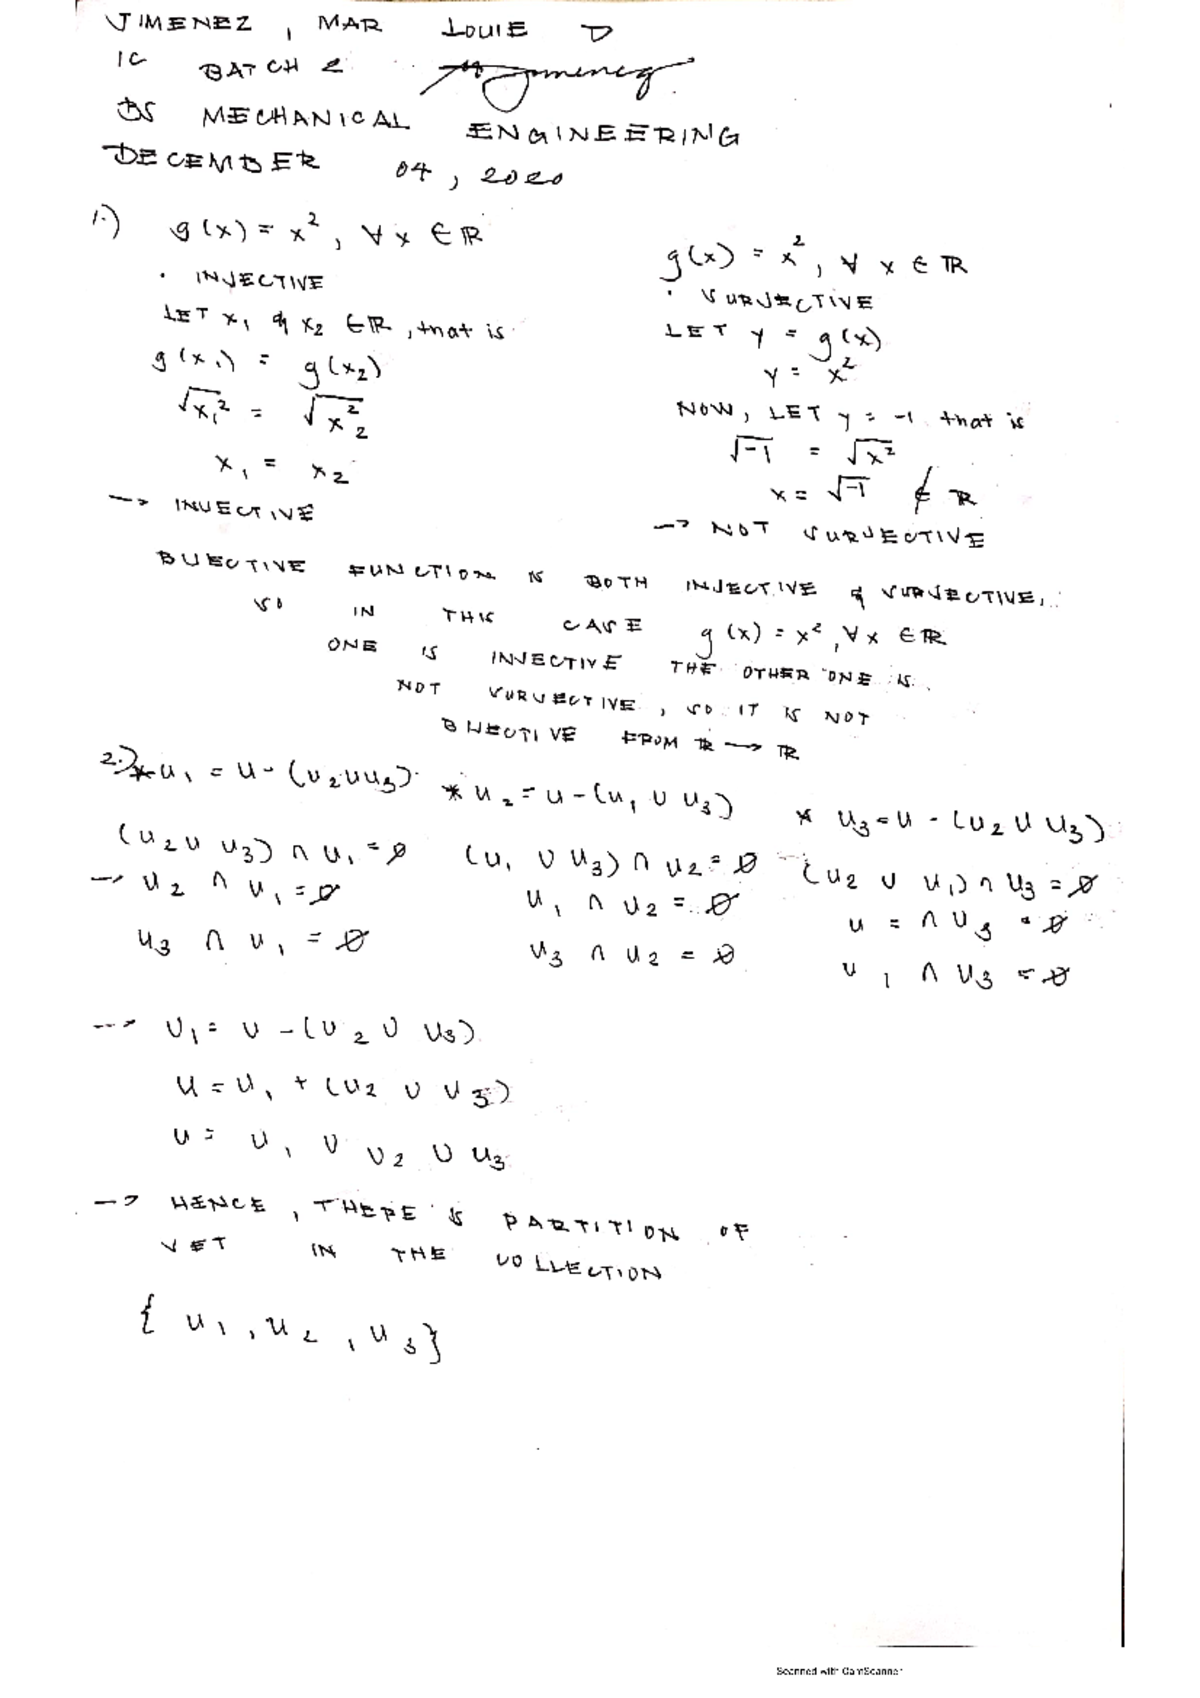 JIMENEZ, MAR LOUIE D
1C BATCH 2
BS MECHANICAL ENGINEERING
DECEMBER 04, 2020
1.) g(x) = x², ∀ x ∈ ℝ
• INJECTIVE
LET x₁ & x₂ ∈ ℝ, that is
g(x₁) = g(x₂)
√x₁² = √x₂²
x₁ = x₂
--> INJECTIVE
g(x) = x², ∀ x ∈ ℝ
• SURJECTIVE
LET y = g(x)
y = x²
NOW, LET y = -1 that is
√-1 = √x²
x = √-1 ∉ ℝ
--> NOT SURJECTIVE
BIJECTIVE FUNCTION IS BOTH INJECTIVE & SURJECTIVE,
SO IN THIS CASE g(x) = x², ∀ x ∈ ℝ
ONE IS INJECTIVE THE OTHER ONE IS
NOT SURJECTIVE, SO IT IS NOT
BIJECTIVE FROM ℝ --> ℝ
2.) * U₁ = U - (U₂ ∪ U₃)
(U₂ ∪ U₃) ∩ U₁ = ∅
--> U₂ ∩ U₁ = ∅
U₃ ∩ U₁ = ∅
* U₂ = U - (U₁ ∪ U₃)
(U₁ ∪ U₃) ∩ U₂ = ∅
U₁ ∩ U₂ = ∅
U₃ ∩ U₂ = ∅
* U₃ = U - (U₂ ∪ U₃)
(U₂ ∪ U₁) ∩ U₃ = ∅
U = ∩ U₃ = ∅
U₁ ∩ U₃ = ∅
--> U₁ = U - (U₂ ∪ U₃)
U = U₁ + (U₂ ∪ U₃)
U = U₁ ∪ U₂ ∪ U₃
--> HENCE, THERE IS PARTITION OF
SET IN THE COLLECTION
{ U₁, U₂, U₃}
Scanned with CamScanner